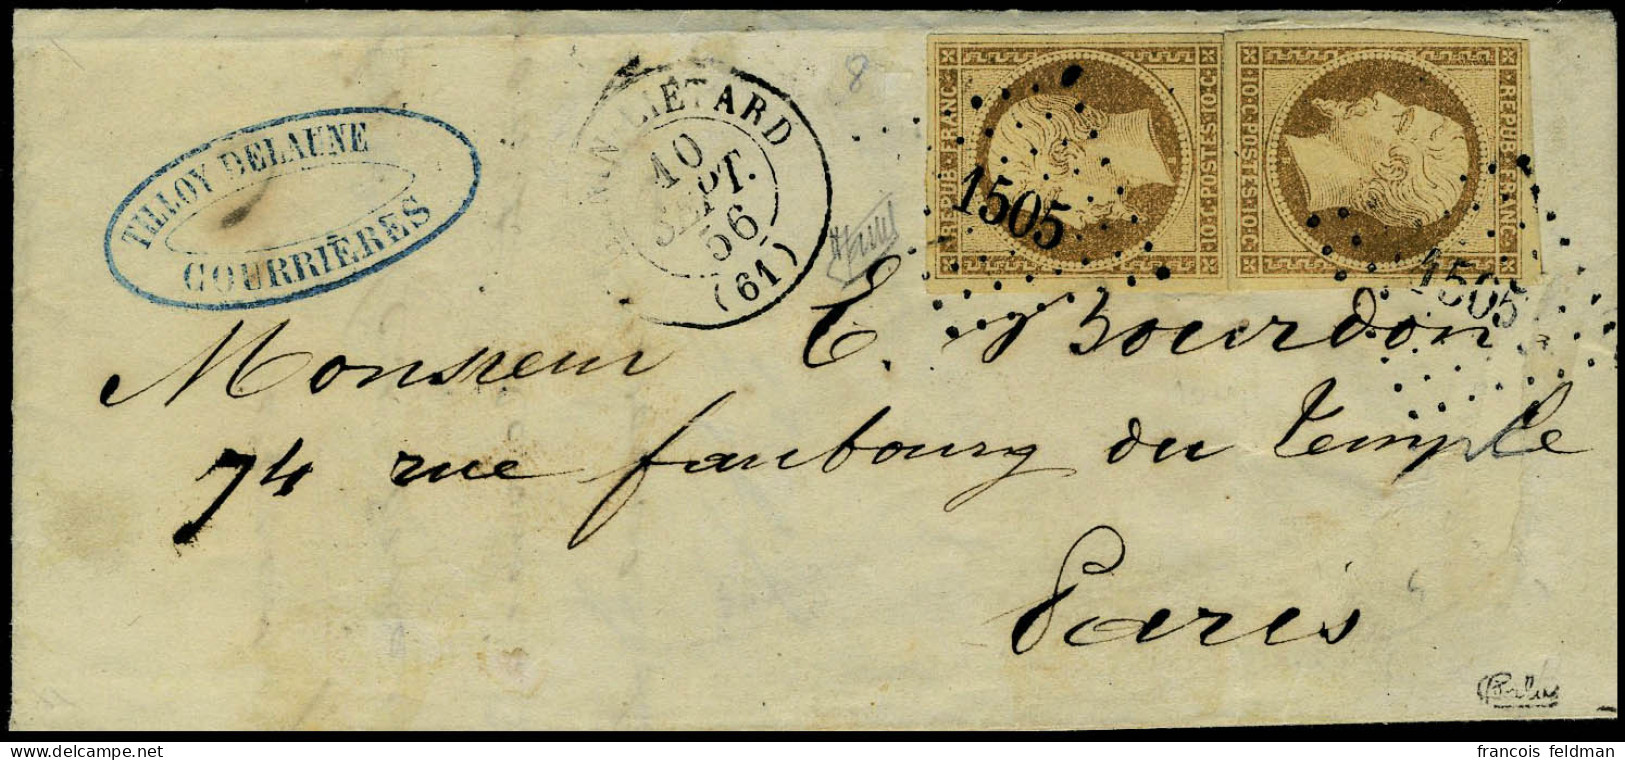 TILLOY DELAUNE
COURRIÈRES
LIÉTARD
10
SEPT.
56
(61)
8
REPUB·FRANC·
10·C·POSTES·10·C·
REPUB·FRANC·
10·C·POSTES·10·C·
1505
1505
Monsieur E. Bourdon
74 rue faubourg du Temple
Paris
francois feldman